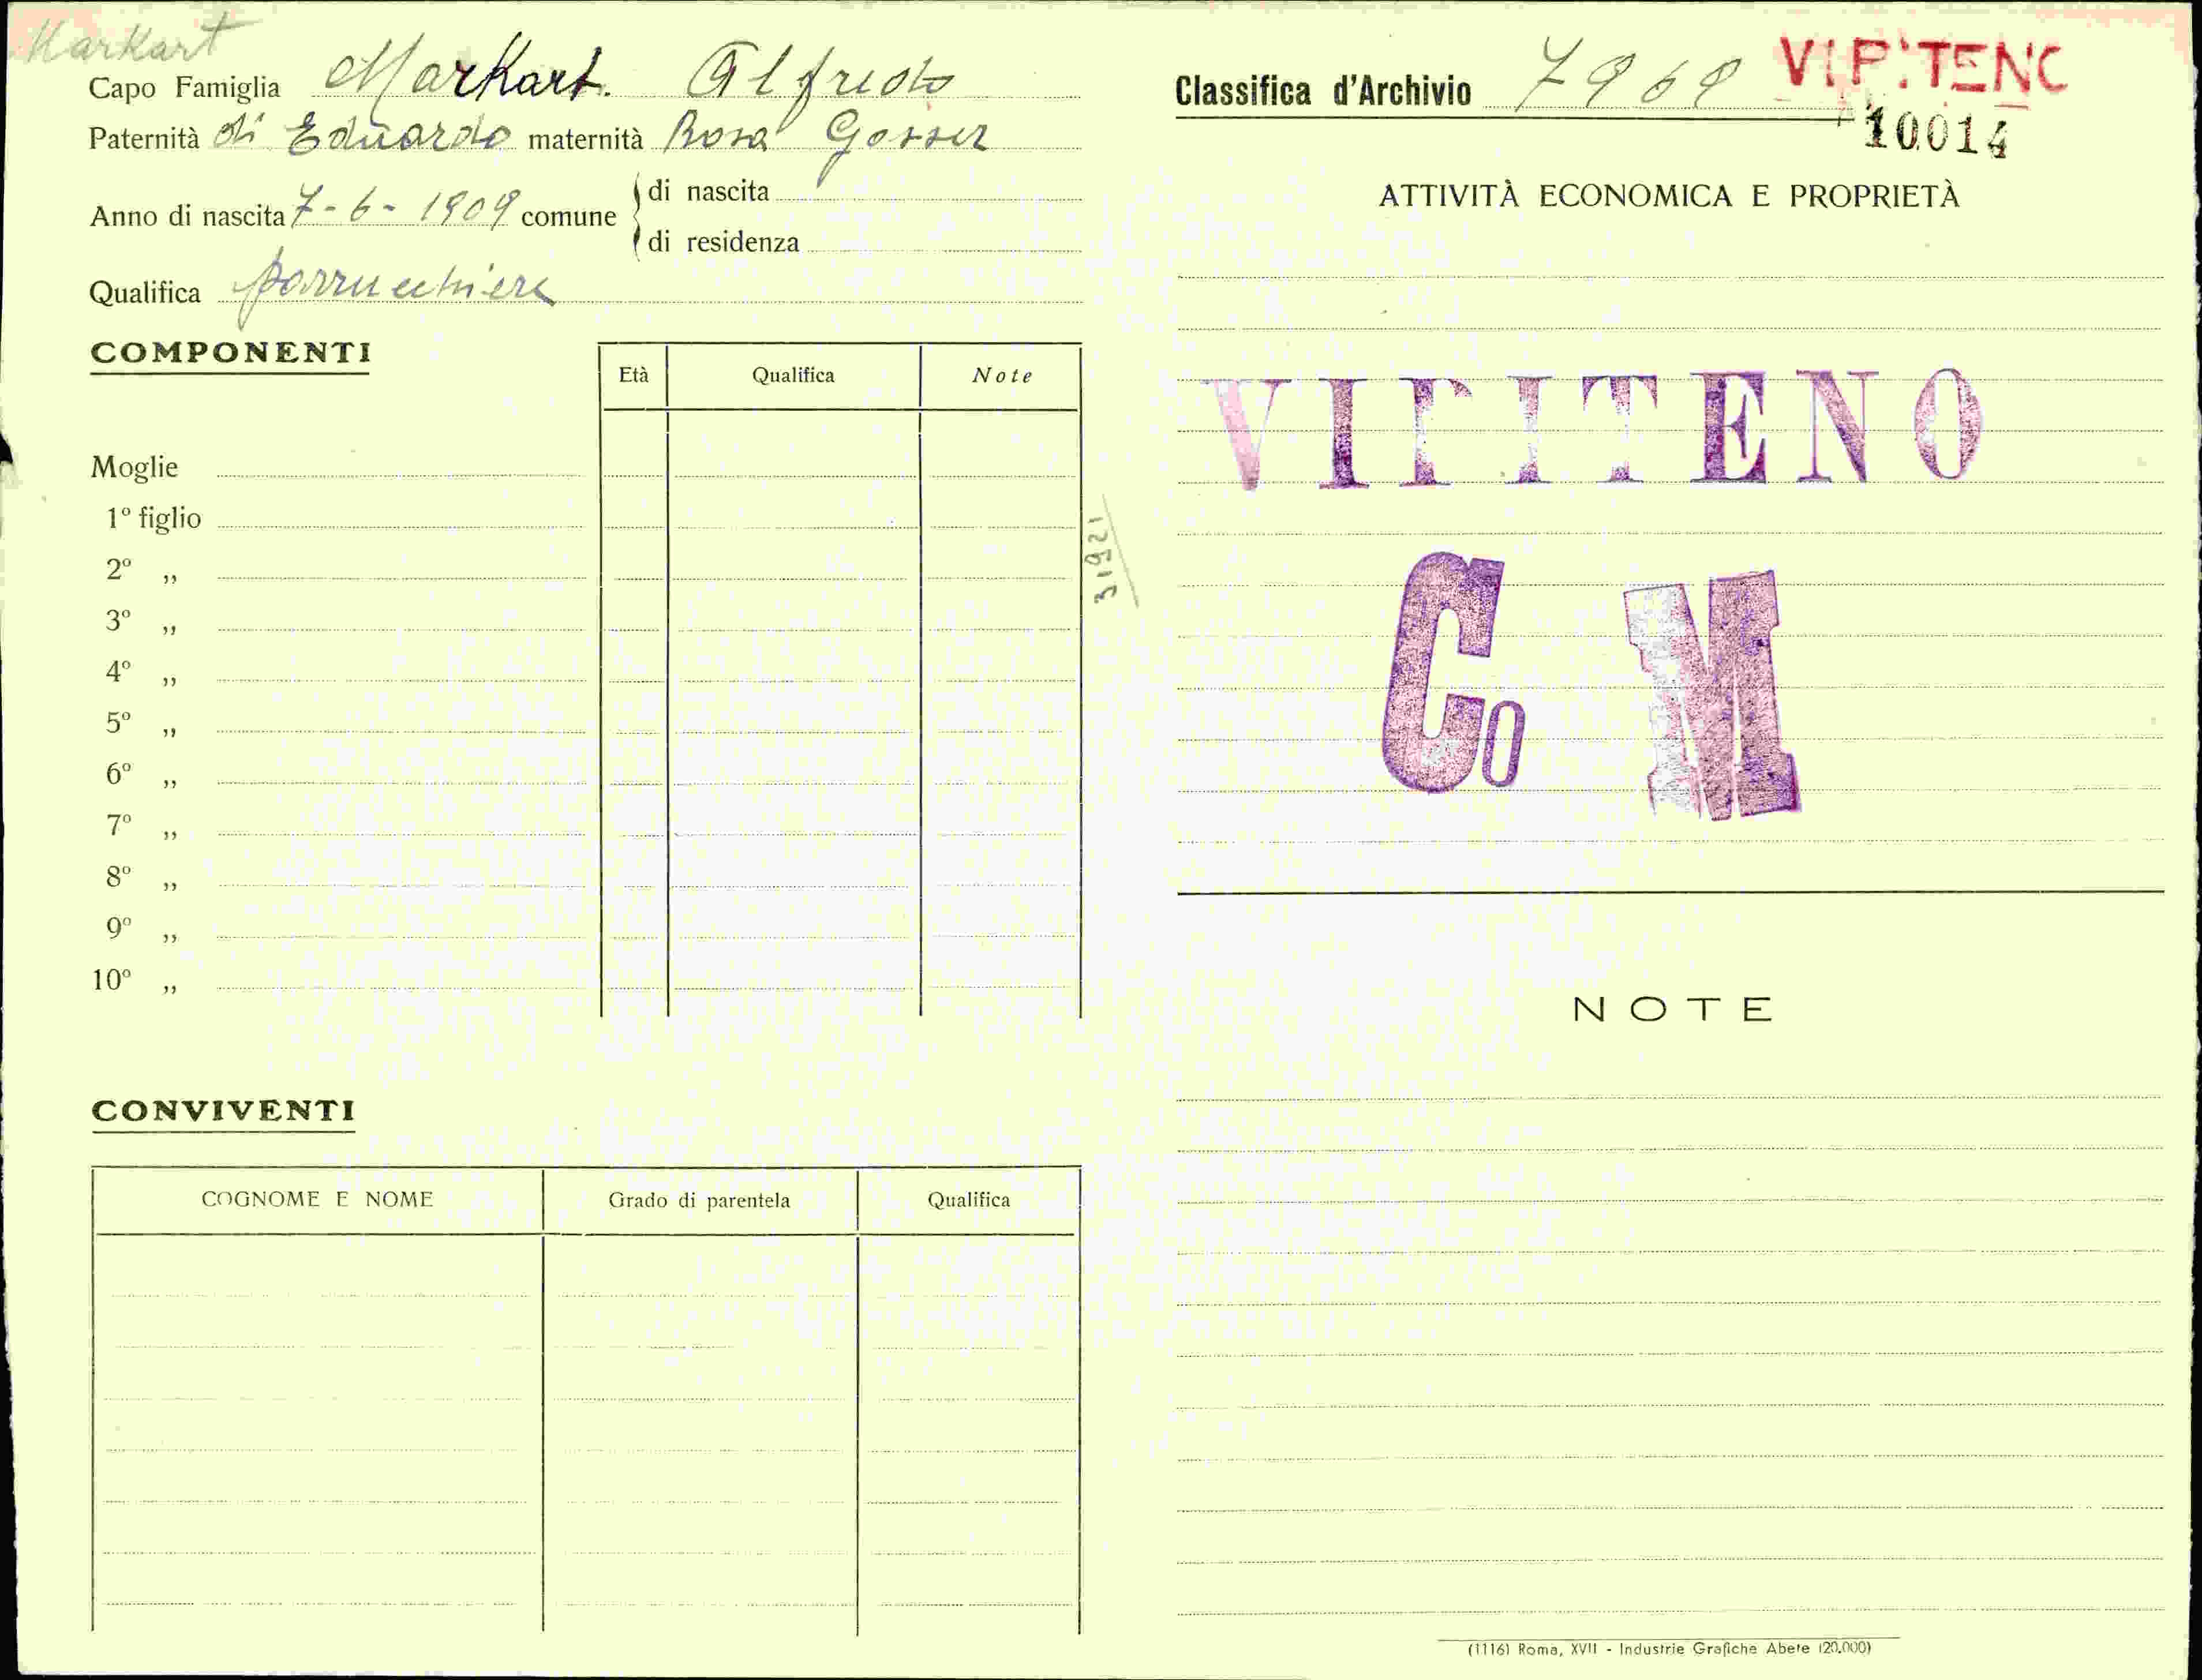 Markart
Capo Famiglia Markart Alfredo
Paternità di Eduardo maternità Rosa Gosser
Anno di nascita 7-6-1909 comune
di nascita
di residenza
Qualifica parrucchiere
COMPONENTI
Età Qualifica Note
Moglie
1º figlio
2º ,,
3º ,,
4º ,,
5º ,,
6º ,,
7º ,,
8º ,,
9º ,,
10º ,,
CONVIVENTI
COGNOME E NOME Grado di parentela Qualifica
31921
Classifica d'Archivio 7969 VIPITENO
10014
ATTIVITÀ ECONOMICA E PROPRIETÀ
VIPITENO
Co M
NOTE
(1116) Roma, XVII - Industrie Grafiche Abete (20.000)